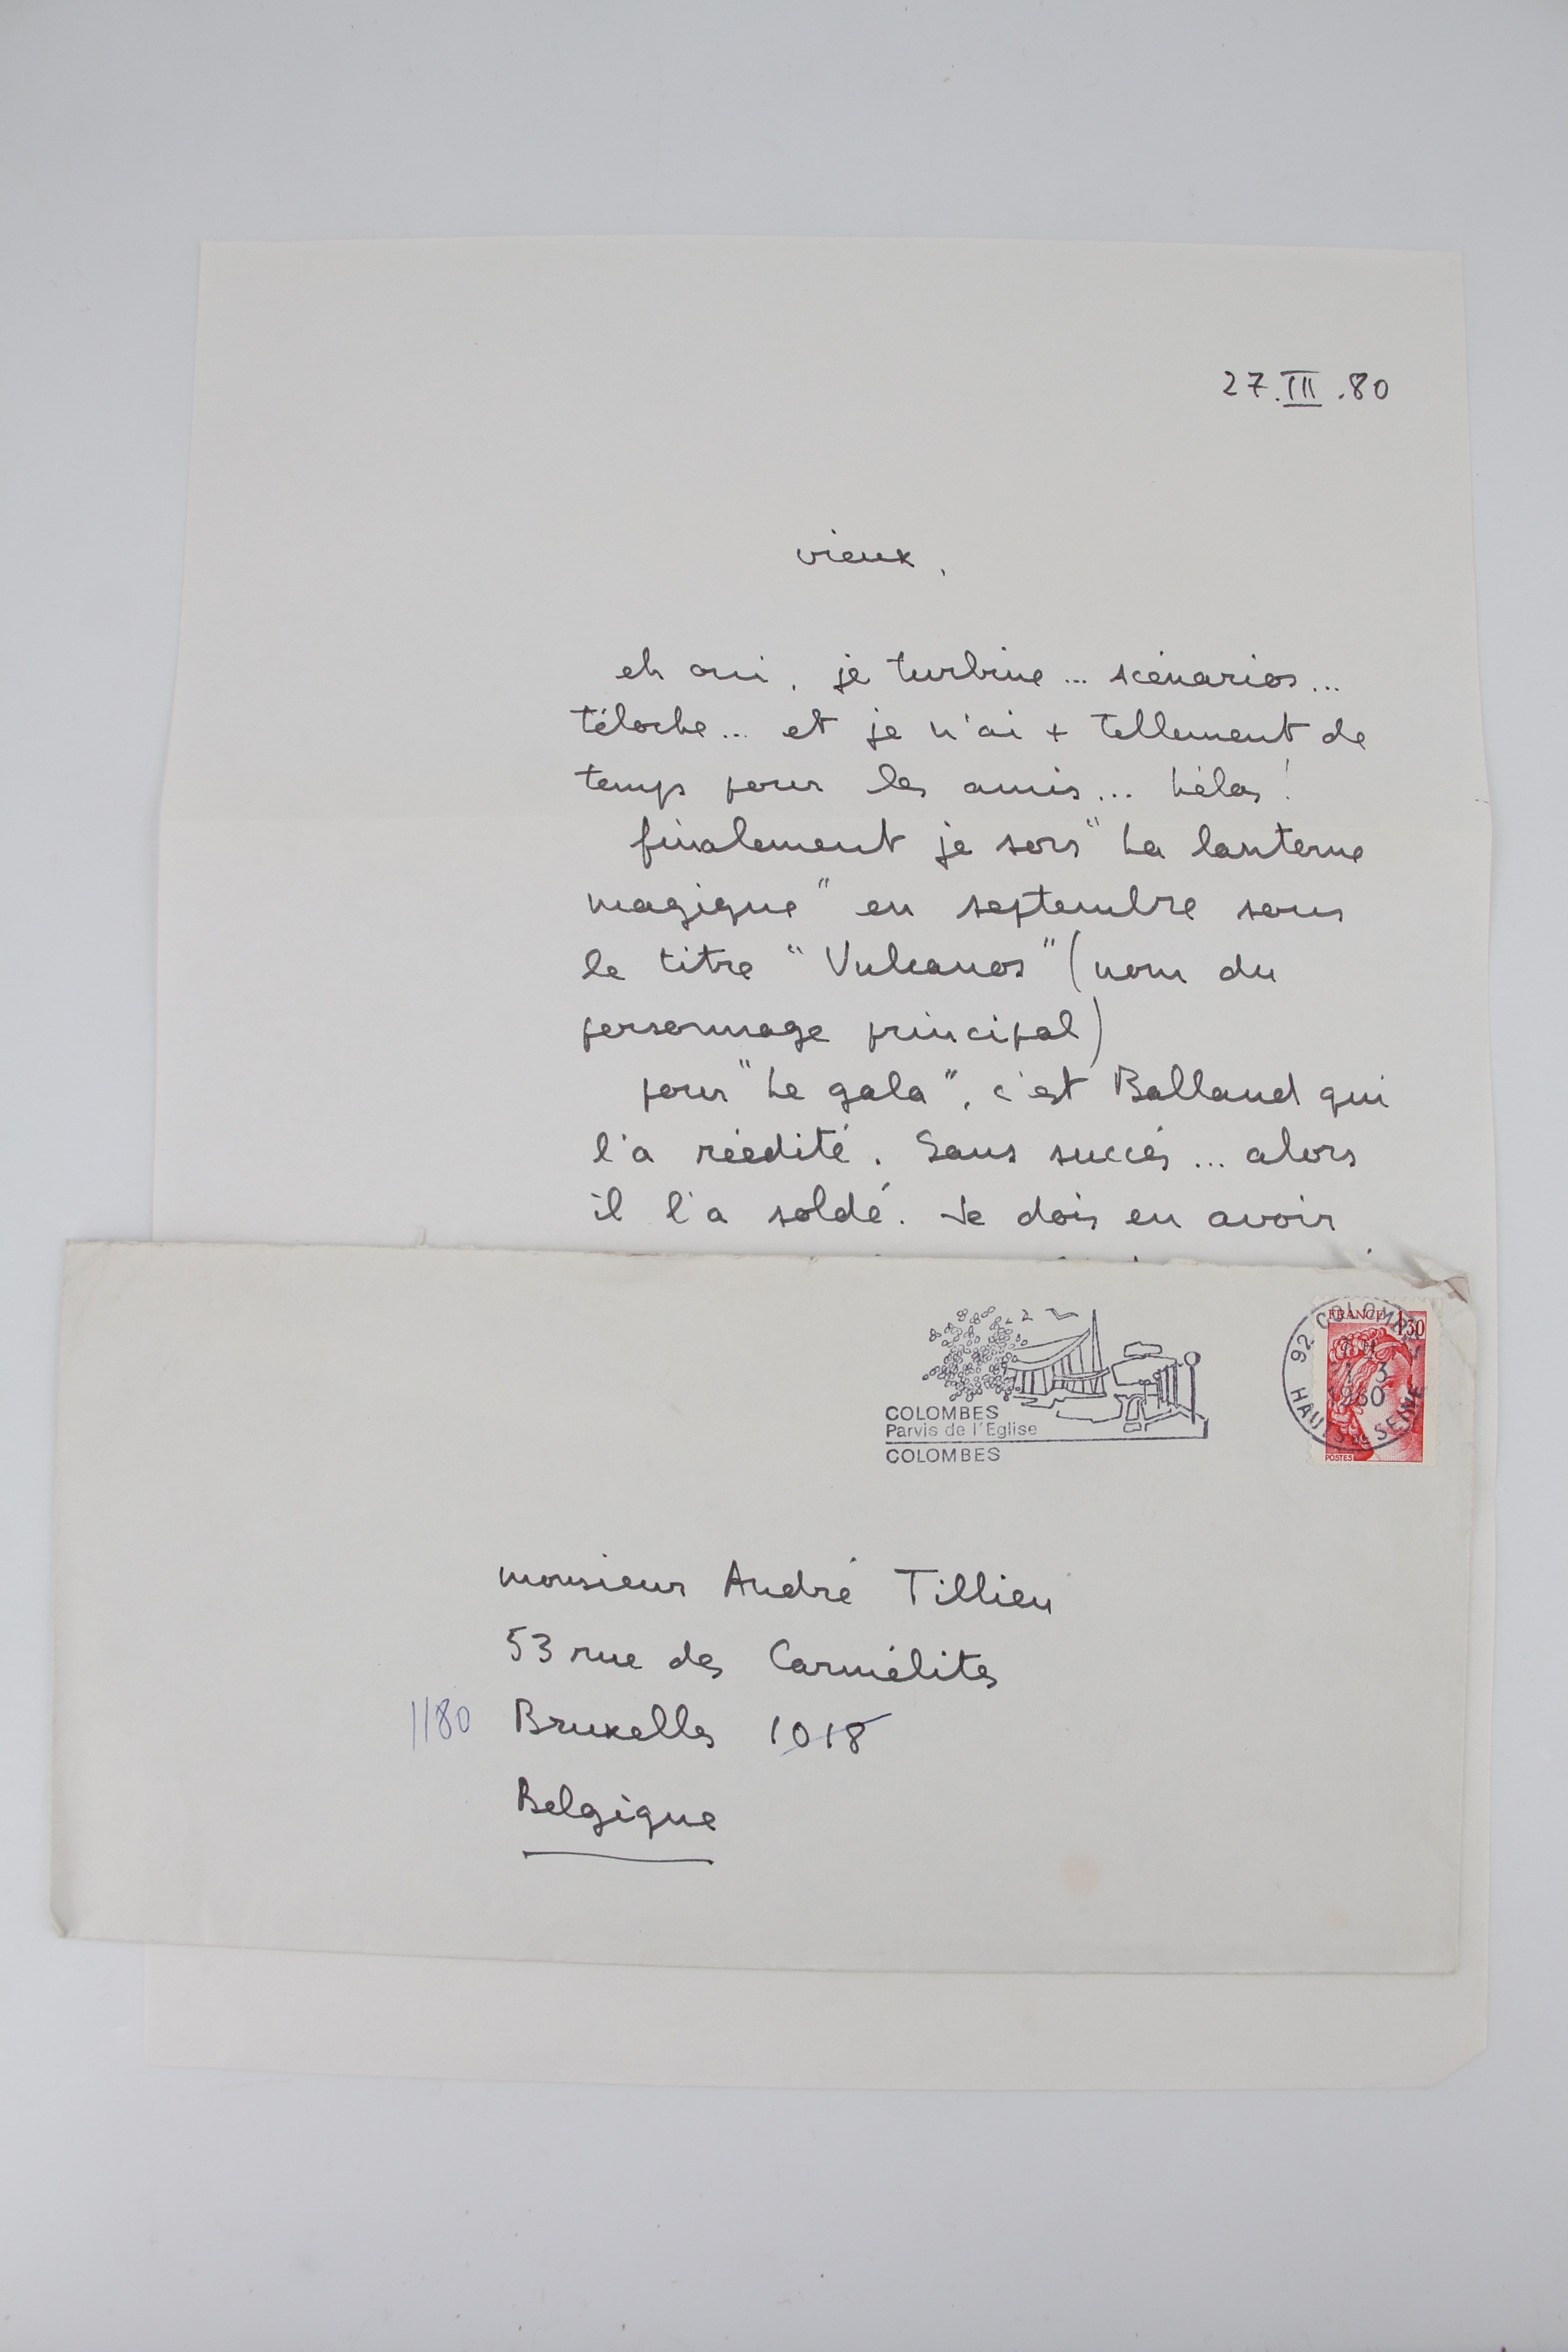 27.III.80
vieux,
eh oui, je turbine... scénarios...
téloche... et je n'ai + tellement de
temps pour les amis... hélas !
finalement je sors "La lanterne
magique" en septembre sous
le titre "Vulcanos" (nom du
personnage principal)
pour "Le gala", c'est Balland qui
l'a réédité. Sans succès... alors
il l'a soldé. Je dois en avoir
COLOMBES
Parvis de l'Eglise
COLOMBES
92 COLOMBES
3
1980
HAUTS DE SEINE
FRANCE 1,30
POSTES
monsieur André Tillieu
53 rue des Carmélites
1180 Bruxelles 1018
Belgique